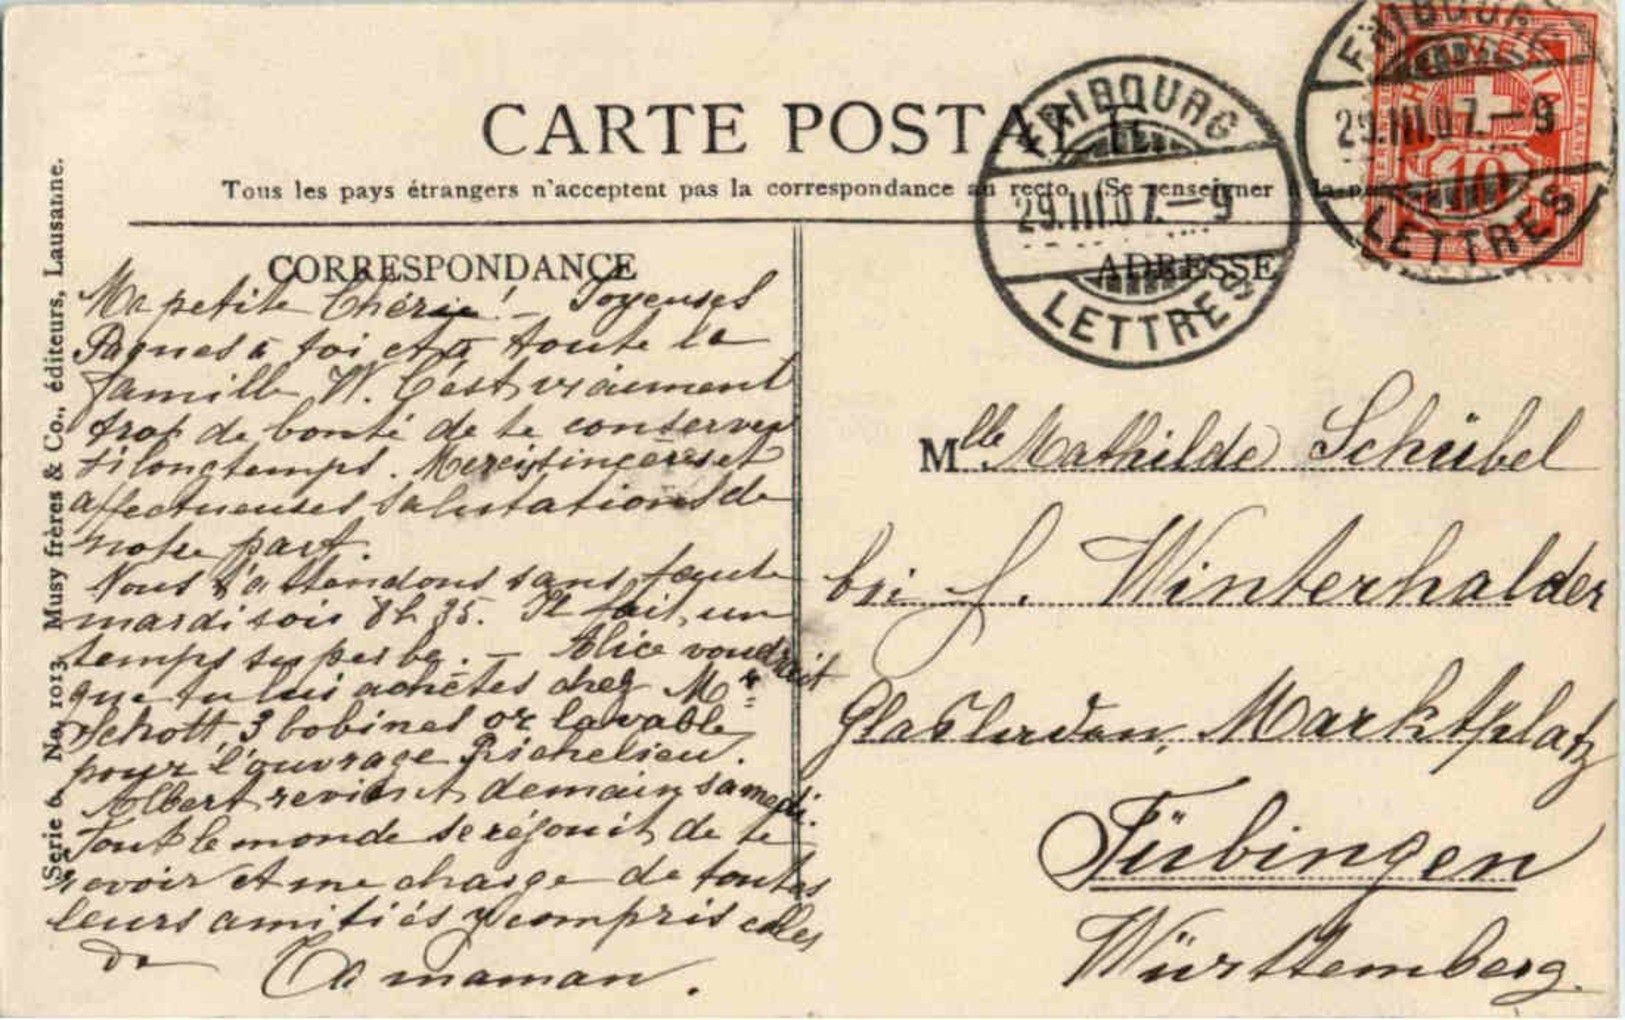 CARTE POSTALE
Tous les pays étrangers n'acceptent pas la correspondance au recto. (Se renseigner à la
FRIBOURG
29.III.07.–9
LETTRES
FRIBOURG
29.III.07.–9
LETTRES
10
CORRESPONDANCE
Ma petite Chérie! – Joyeuses
Paques à toi et à toute la
famille W. C'est vraiment
trop de bonté de te conserver
si longtemps. Merci sincères et
affectueuses salutations de
notre part.
Nous t'attendons sans faute
mardi soir 8h 35. Il fait un
temps superbe. – Alice voudrait
que tu lui achètes chez Mr
Schott 3 bobines or lavable
pour l'ouvrage Richelieu.
Albert revient demain samedi.
Tout le monde se réjouit de te
revoir et me charge de toutes
leurs amitiés y compris celles
de Ta maman.
ADRESSE
Mlle Mathilde Schübel
bei f. Winterhalder
Glasladen, Marktplatz
Tübingen
Württemberg.
Serie 6 No. 1013 Musy frères & Co., éditeurs, Lausanne.